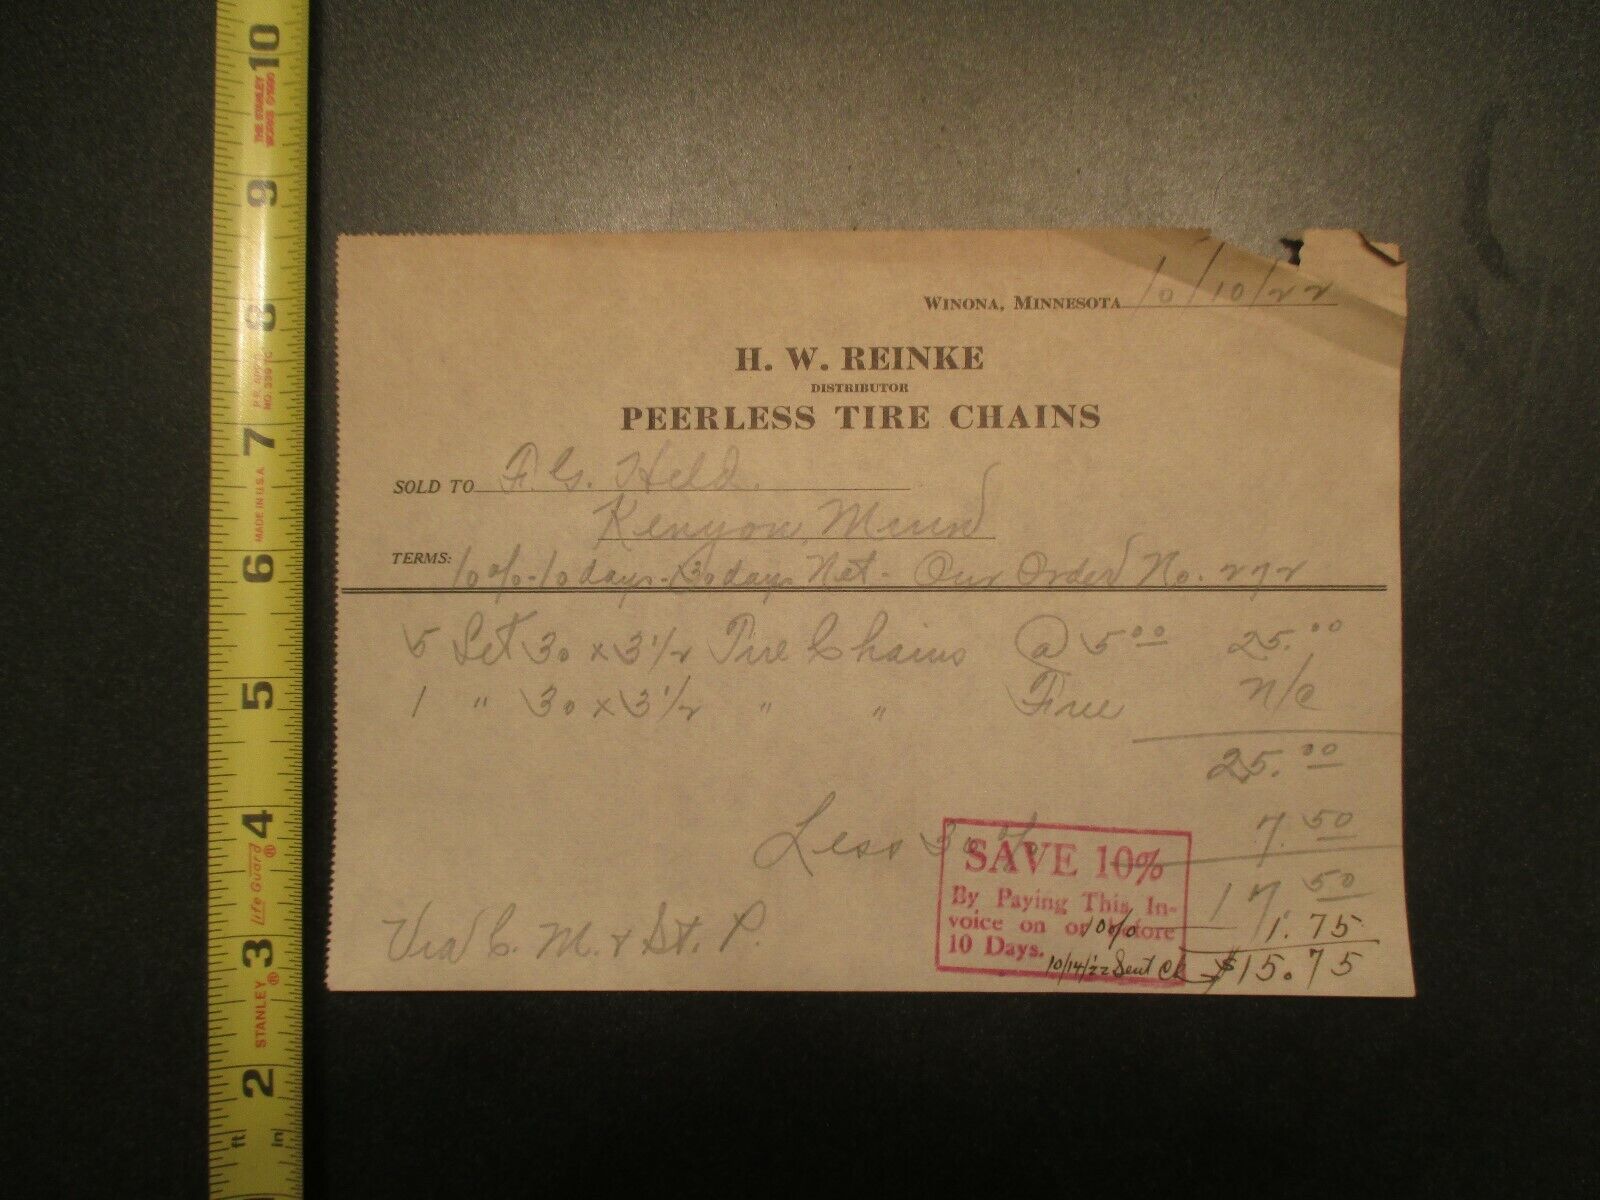 WINONA, MINNESOTA 10/10/22
H. W. REINKE
DISTRIBUTOR
PEERLESS TIRE CHAINS
SOLD TO F. G. Held.
Kenyon, Minn
TERMS: 10%-10 days-30 days Net- Our Order No. 272
5 Set 30 x 3 1/2 Tire Chains @ 5.00 25.00
1 " 30 x 3 1/2 " " Free n/c
25.00
Less 30% 7.50
17.50
10% 1.75
10/14/22 Sent Ck $15.75
SAVE 10%
By Paying This In-
voice on or before
10 Days.
Via C. M. & St. P.
10
9
8
7
6
5
4
3
2
ft in
THE STANLEY
WORKS ©1995
NO. 339 TC
MADE IN U.S.A.
life Guard®
STANLEY®